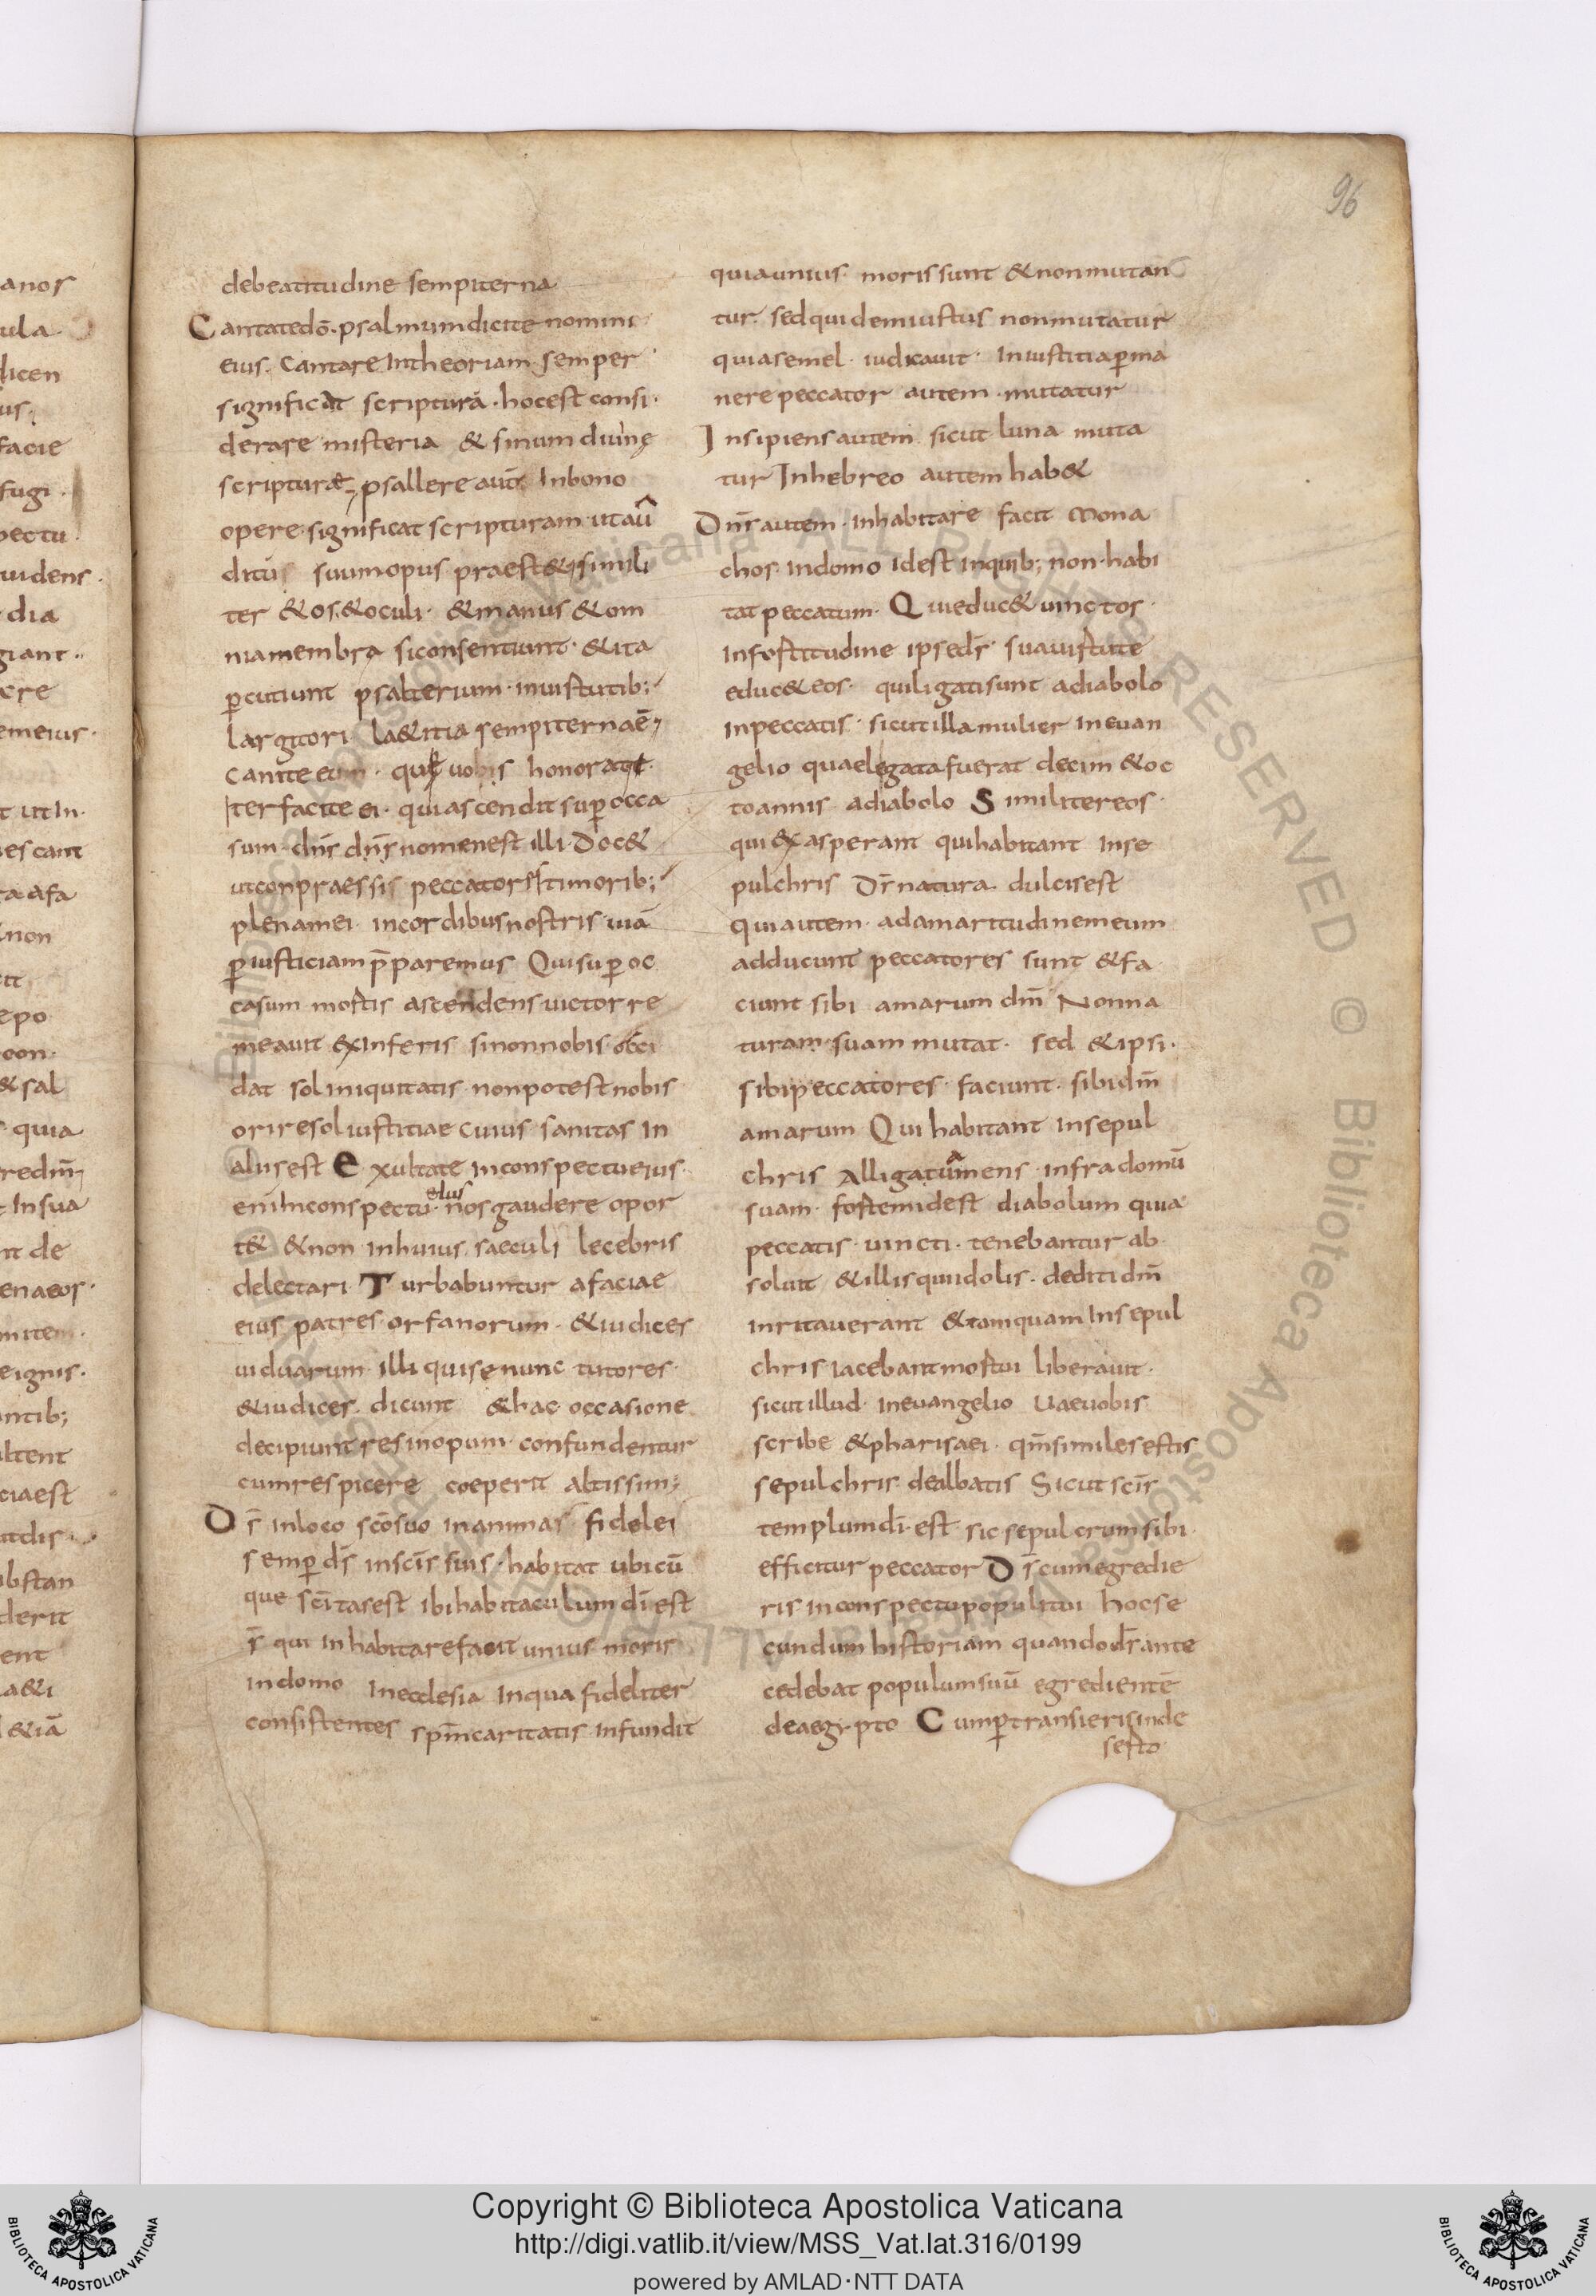 96
debeatitudine sempiterna
Cantatedō· psalmumdicite nomini
eius. Cantare Intheoriam semper
significat scripturā· hocest consi·
derare misteria & sinum diuinę
scripturae, psallere aut̄ Inbono
opere significat scripturam· utau
ditus suumopus praest& simili
ter &os,&oculi· &manus &om
niamembra siconsentiunt· &ita
p̄cutiunt psalterium· inuirtutib;
largitori la&itia sempiternae
canite · uobis honora
Iterfacite ei· quiascendit sup̄occa
sum· dn̄s dn̄snomenest illi· Doc&
utconpraessis peccatorē timorib;
plenamei· incordibusnostris· uiā
p̄iusticiam p̄paremus Quisup̄oc
casum mortis ascendens uictor re
meauit exInferis sinonnobis occi
dat sol iniquitatis· nonpotestnobis
oriresoliustitiae cuius sanitas In
alisest Exultate inconspectueius·
eniminconspectu· eius nosgaudere opor
t& &non inhuius saeculi lecebris
delectari Turbabuntur afaciae
eius patres orfanorum· &iudices
uiduarum· illi quisenunc tutores·
&iudices· dicunt &hac occasione
decipiuntresinopum· confundentur
cumrespicere coeperit altissim;
Ds̄ inloco scōsuo inanimas fidelei
semp̄ ds̄ inscīs suis· habitat ubicū
que scītasest ibihabitaculum dīest
s̄ qui Inhabitarefacit unius moris
indomo Inecclesia inqua fideliter
consistentes spm̄caritatis infundit
quiaunius· morissunt &nonmutan
tur· sedquidemiustus nonmutatur
quiasemel· iudicauit· Iniustitiap̄ma
nere peccator autem· mutatur
Insipiensautem sicut luna muta
tur Inhebreo autem hab&
Dn̄sautem· inhabitare facit mona
chos· indomo idest inquib; non·habi
tatpeccatum· Quieduc& uinctos·
Infortitudine ipseds̄· suauirtute
educ&eos· quiligatisunt adiabolo
inpeccatis· sicutillamulier ineuan
gelio quaelegatafuerat decim &oc
toannis adiabolo Similitereos·
qui exasperant quihabitant inse
pulchris Ds̄natura dulcisest
quiautem· adamaritudinemeum
adducunt peccatores sunt &fa
ciunt sibi amarum dm̄ Nonna
turam·suam mutat· sed &ipsi·
sibipeccatores· faciunt· sibidm̄
amarum Qui habitant insepul
chris Alligatuamens· infradomū
suam· fortemidest diabolum quia
peccatis· uincti· tenebantur ab·
soluit &illisquiidolis· dediti dm̄
inritauerant &tamquam Insepul
chris iacebantmortui liberauit·
sicutillud· ineuangelio Uaeuobis
scribe &pharisaei· qm̄similesestis
sepulchris· dealbatis Sicut scīs
templumdī·est sic sepulcrumsibi·
efficitur peccator Ds̄cumegredie
ris inconspectupopulitui hocse
cundum historiam quandods̄ante
cedebat populumsuū egredientē
deaegypto Cump̄transierisinde
serto
anos
ula
dicen
us,
facie
fugi·
pectu·
uidens·
dia
giant··
cre
emeius·
t utIn·
escant
ra afa
non
epo
eon·
&sal
quia
redm̄
Insua
nt de
enaeos·
mitem·
eignis·
antib;
altent
ciaest
utdis·
ubstan
derit
ent
a&i
&iā
© Biblioteca Apostolica Vaticana ALL RIGHTS RESERVED © Biblioteca Apostolica Vaticana ALL RIGHTS RESERVED
Copyright © Biblioteca Apostolica Vaticana
http://digi.vatlib.it/view/MSS_Vat.lat.316/0199
powered by AMLAD·NTT DATA
BIBLIOTECA APOSTOLICA VATICANA
BIBLIOTECA APOSTOLICA VATICANA